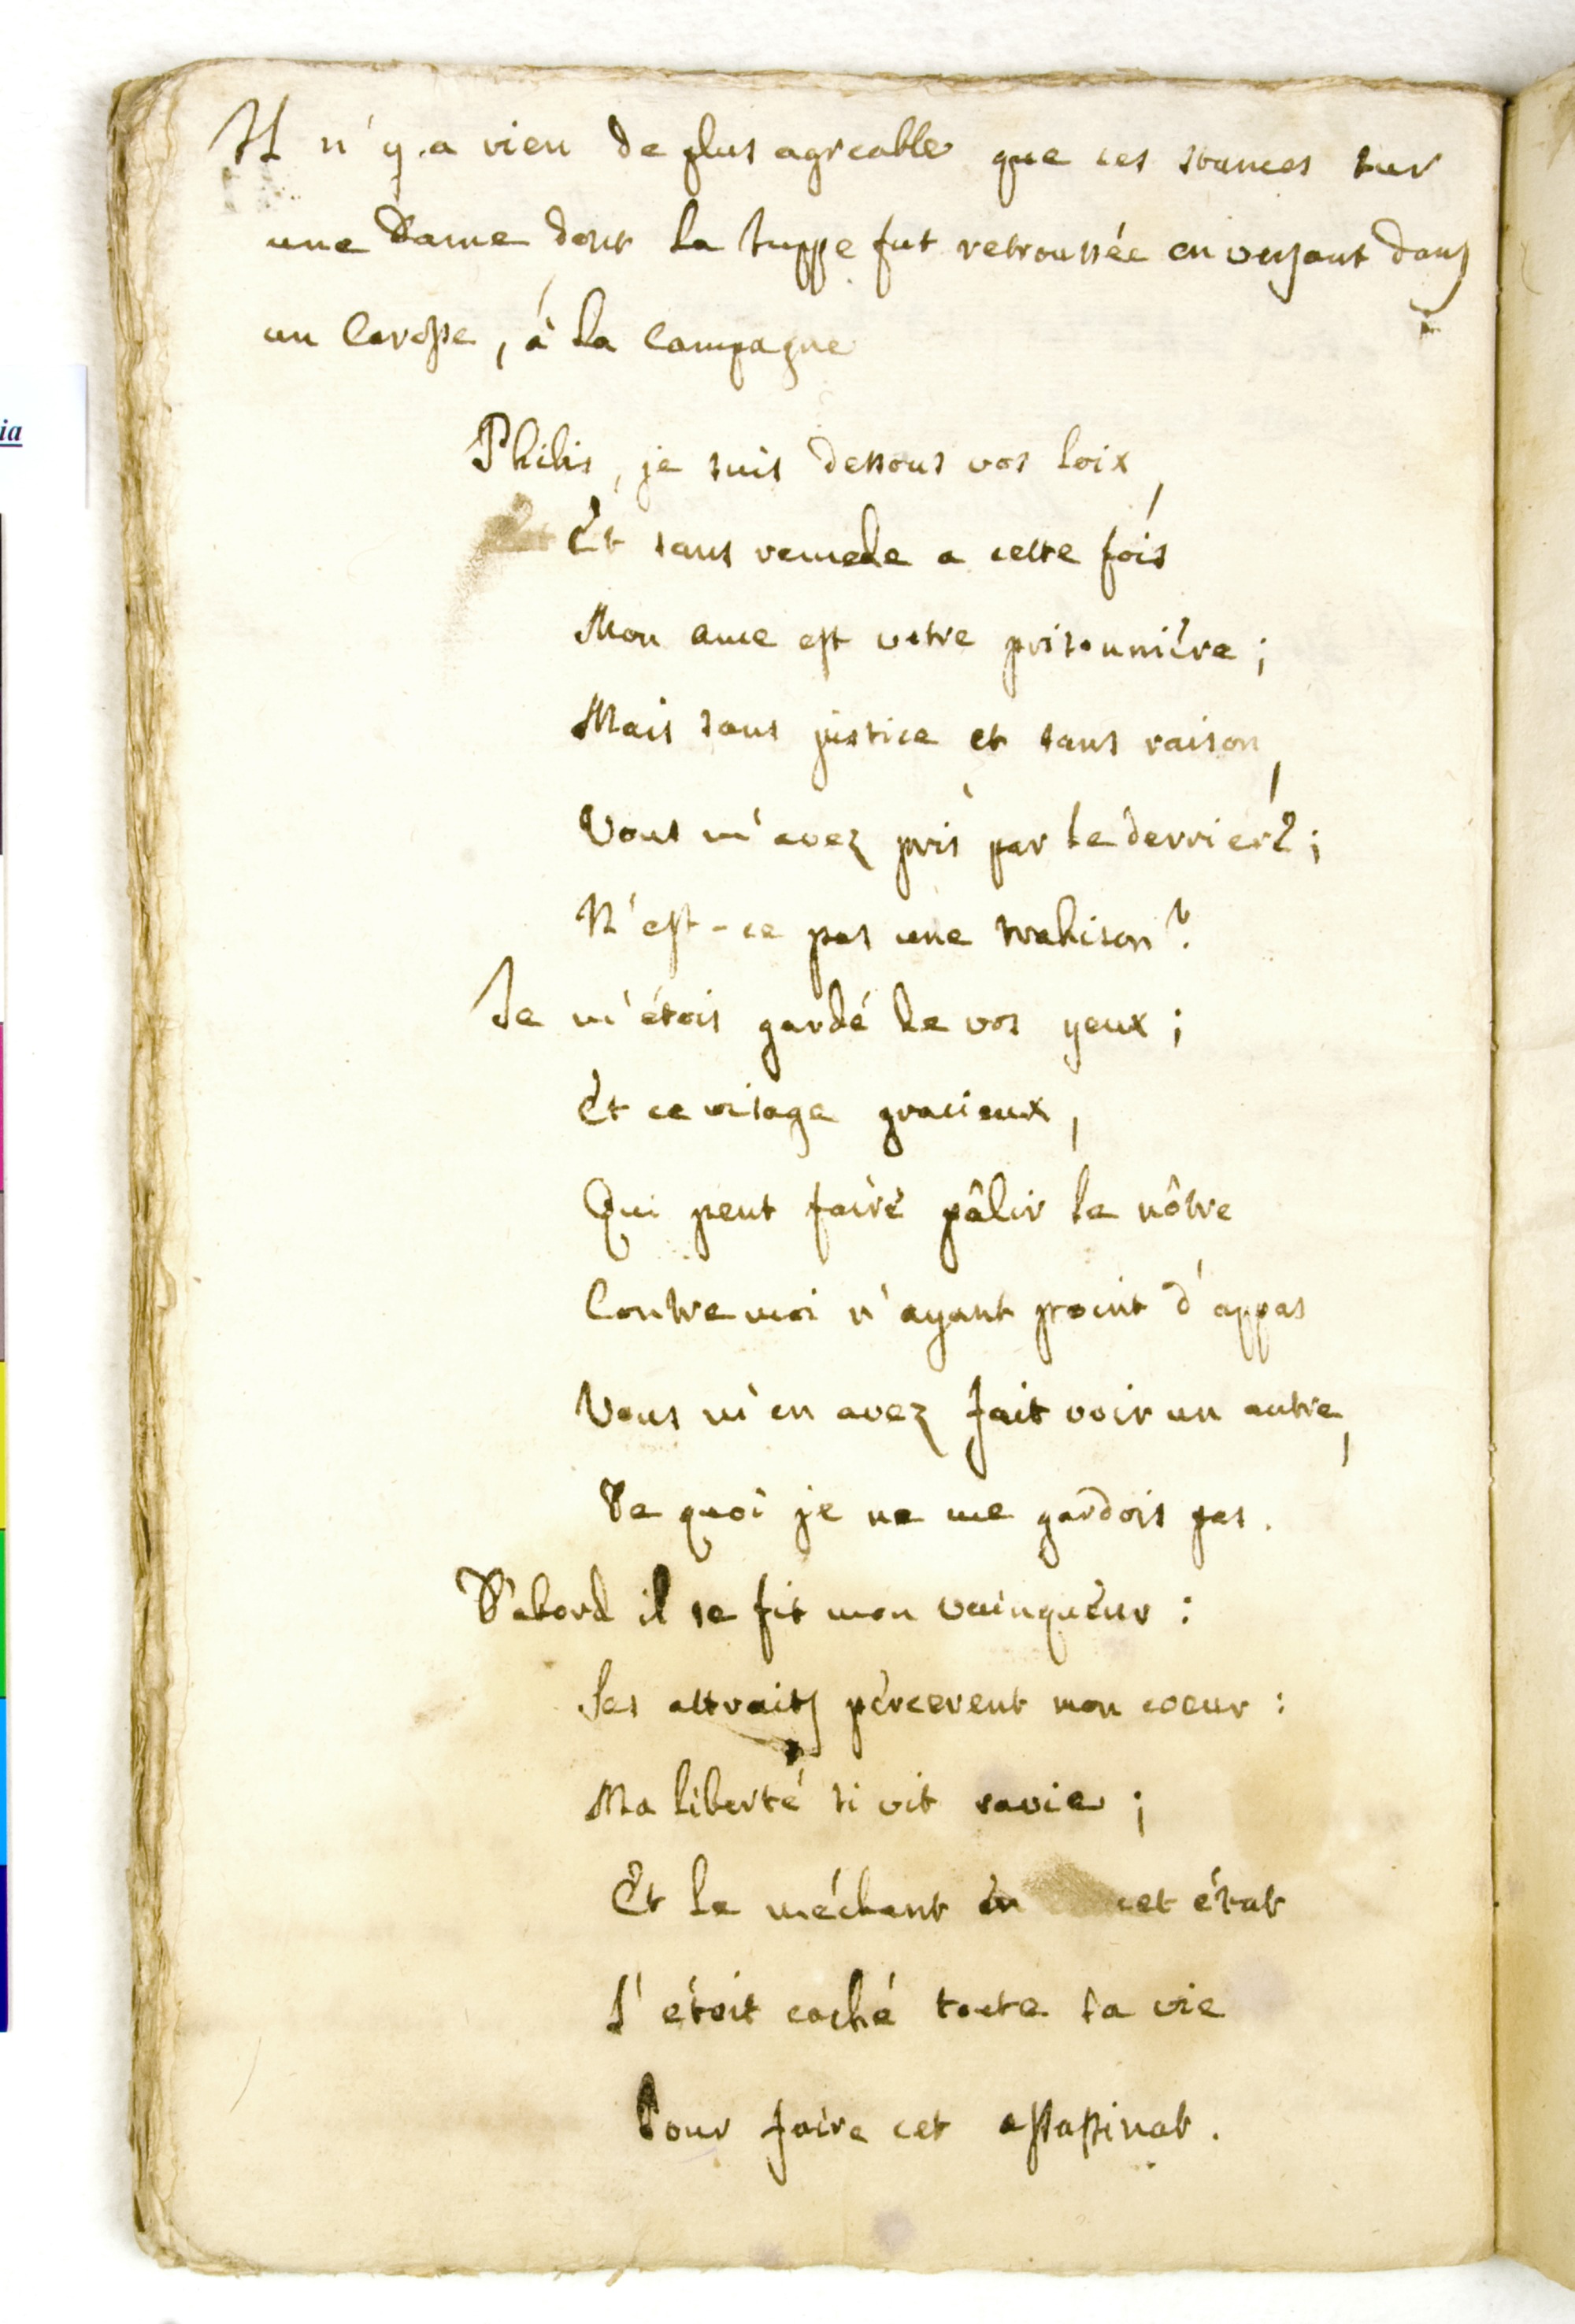 Il n'y a rien de plus agreable que ces stances sur
une Dame dont la Juppe fut retroussée en versant dans
un Carosse, à la Campagne
Philis, je suis dessous vos loix,
Et sans remede a cette fois
Mon ame est votre prisonnière;
Mais sans justice et sans raison,
Vous m'avez pris par le derriere;
N'est-ce pas une trahison?
Je m'étois gardé de vos yeux;
Et ce visage gracieux,
Qui peut faire pâlir le nôtre
Contre moi n'ayant point d'appas
Vous m'en avez fait voir un autre,
De quoi je ne me gardois pas.
D'abord il se fit mon vainqueur:
Ses attraits percerent mon coeur:
Ma liberté si vit ravie;
Et le méchant en cet état
S'étoit caché toute sa vie
Pour faire cet assassinat.
ia